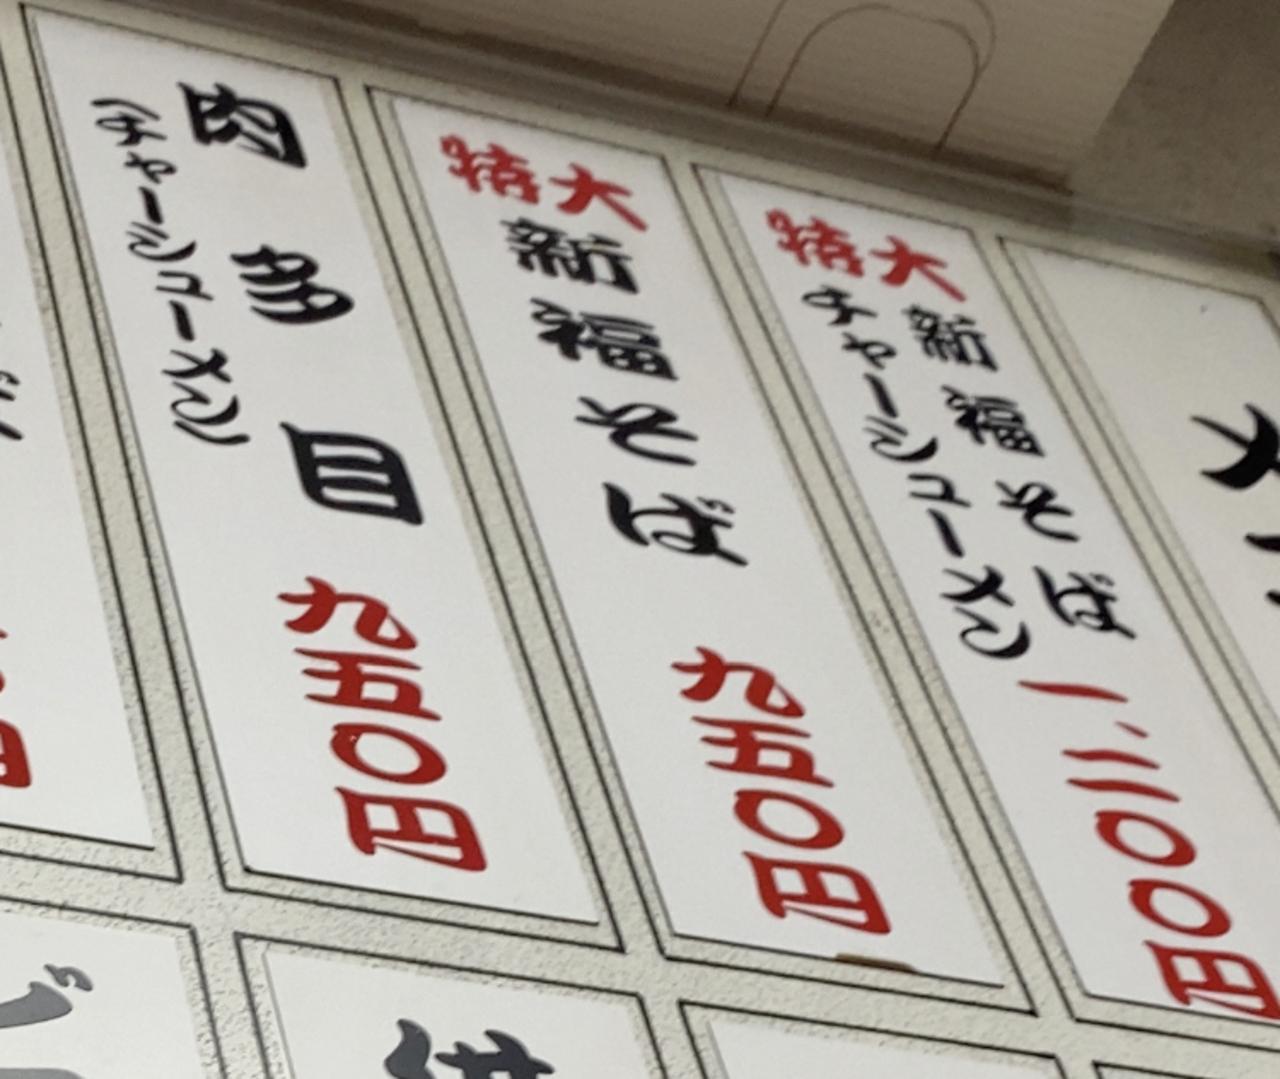 特大
新福そば
チャーシューメン
一、二〇〇円
特大
新福そば
九五〇円
肉多目
(チャーシューメン)
九五〇円